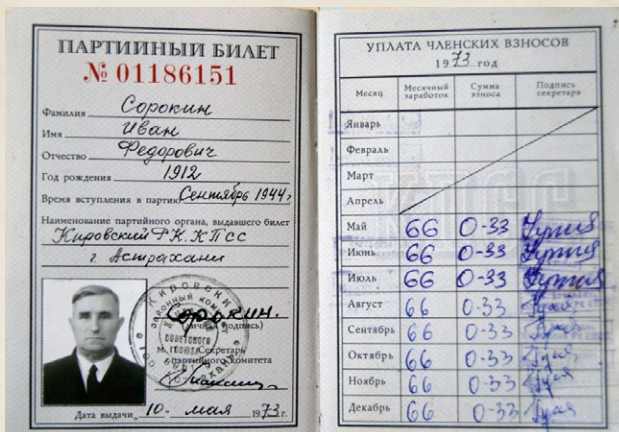 ПАРТИЙНЫЙ БИЛЕТ
№ 01186151
Фамилия Сорокин
Имя Иван
Отчество Федорович
Год рождения 1912
Время вступления в партию Сентябрь 1944 г
Наименование партийного органа, выдавшего билет
Кировский РК КПСС
г. Астрахани
Сорокин.
(личная подпись)
М. П. Секретарь
партийного комитета
Дата выдачи „10“ мая 1973 г.
УПЛАТА ЧЛЕНСКИХ ВЗНОСОВ
1973 год
Месяц Месячный заработок Сумма взноса Подпись секретаря
Январь
Февраль
Март
Апрель
КПСС
Май 66 0-33
Июнь 66 0-33
Июль 66 0-33
Август 66 0-33
Сентябрь 66 0-33
Октябрь 66 0-33
Ноябрь 66 0-33
Декабрь 66 0-33